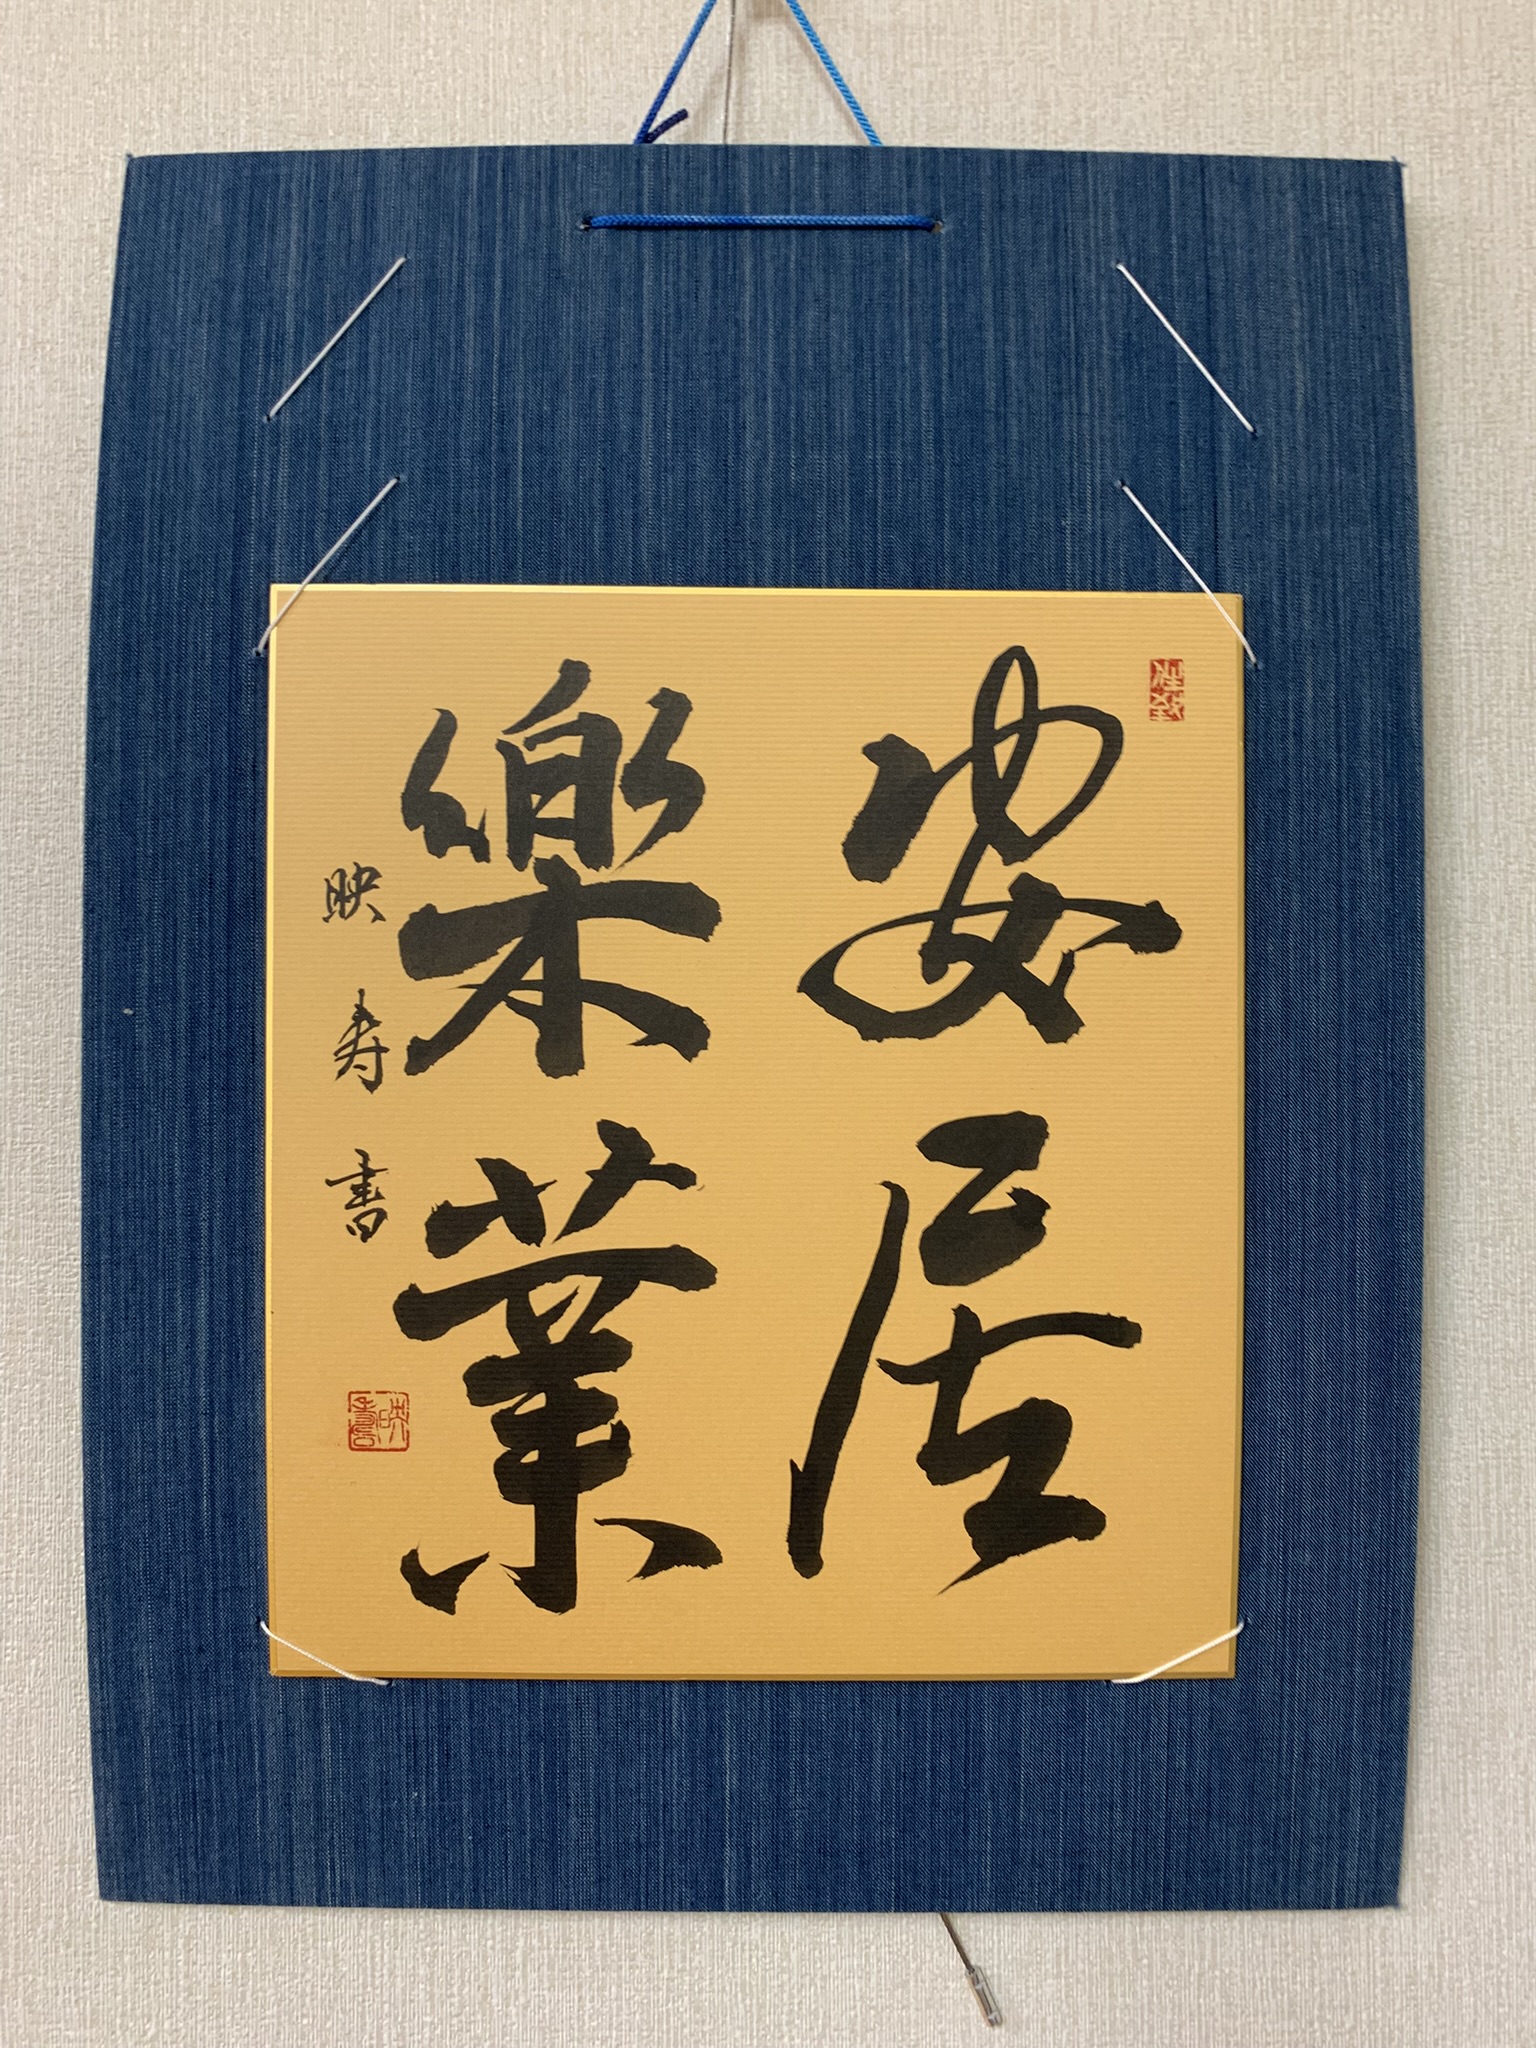 安居
樂業
映寿書
映壽